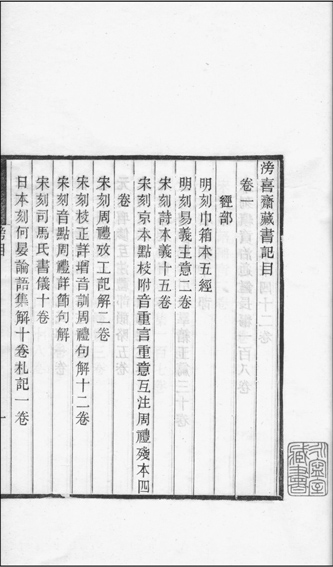 滂喜齋藏書記目
卷一
經部
明刻巾箱本五經
明刻易義主意二卷
宋刻詩本義十五卷
宋刻京本點校附音重言重意互注周禮殘本四
卷
宋刻周禮攷工記解二卷
宋刻校正詳增音訓周禮句解十二卷
宋刻音點周禮詳節句解
宋刻司馬氏書儀十卷
日本刻何晏論語集解十卷札記一卷
滂目
一